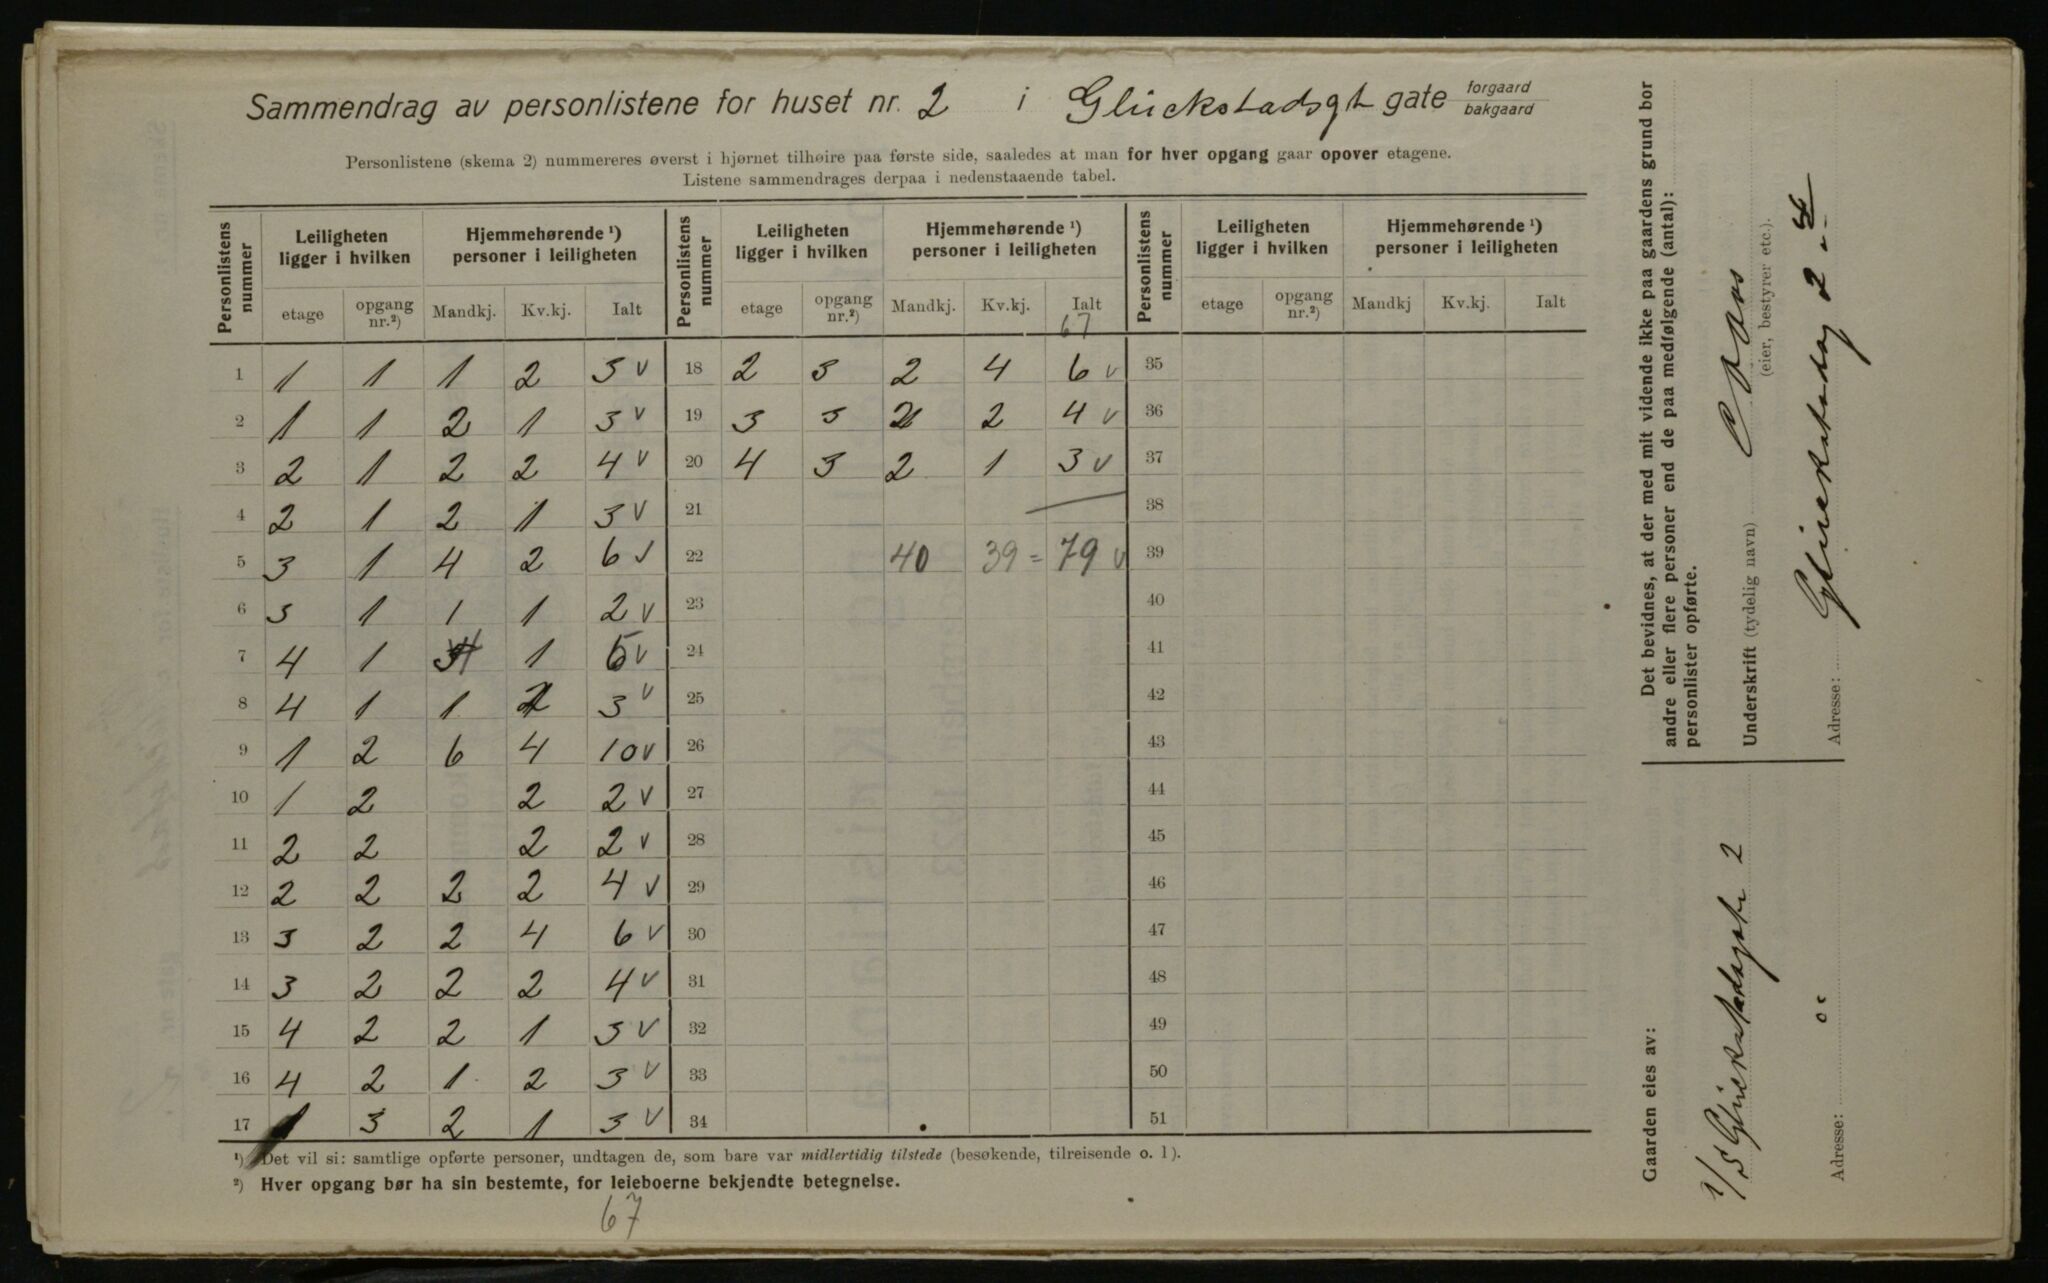 Sammendrag av personlistene for huset nr. 2 i Glückstadsgt gate forgaard
bakgaard
Personlistene (skema 2) nummereres øverst i hjørnet tilhøire paa første side, saaledes at man for hver opgang gaar opover etagene.
Listene sammendrages derpaa i nedenstaaende tabel.
Personlistens nummer | Leiligheten ligger i hvilken | Hjemmehørende ¹) personer i leiligheten | Personlistens nummer | Leiligheten ligger i hvilken | Hjemmehørende ¹) personer i leiligheten | Personlistens nummer | Leiligheten ligger i hvilken | Hjemmehørende ¹) personer i leiligheten
etage | opgang nr.²) | Mandkj. | Kv.kj. | Ialt | etage | opgang nr.²) | Mandkj. | Kv.kj. | Ialt | etage | opgang nr.²) | Mandkj | Kv.kj. | Ialt
67
1 | 1 | 1 | 1 | 2 | 3 v | 18 | 2 | 3 | 2 | 4 | 6 v | 35
2 | 1 | 1 | 2 | 1 | 3 v | 19 | 3 | 3 | 2 | 2 | 4 v | 36
3 | 2 | 1 | 2 | 2 | 4 v | 20 | 4 | 3 | 2 | 1 | 3 v | 37
4 | 2 | 1 | 2 | 1 | 3 v | 21 | 38
5 | 3 | 1 | 4 | 2 | 6 v | 22 | 40 | 39 = | 79 v | 39
6 | 3 | 1 | 1 | 1 | 2 v | 23 | 40
7 | 4 | 1 | 4 | 1 | 5 v | 24 | 41
8 | 4 | 1 | 1 | 2 | 3 v | 25 | 42
9 | 1 | 2 | 6 | 4 | 10 v | 26 | 43
10 | 1 | 2 | 2 | 2 v | 27 | 44
11 | 2 | 2 | 2 | 2 v | 28 | 45
12 | 2 | 2 | 2 | 2 | 4 v | 29 | 46
13 | 3 | 2 | 2 | 4 | 6 v | 30 | 47
14 | 3 | 2 | 2 | 2 | 4 v | 31 | 48
15 | 4 | 2 | 2 | 1 | 3 v | 32 | 49
16 | 4 | 2 | 1 | 2 | 3 v | 33 | 50
17 | 1 | 3 | 2 | 1 | 3 v | 34 | 51
¹) Det vil si: samtlige opførte personer, undtagen de, som bare var midlertidig tilstede (besøkende, tilreisende o. l).
²) Hver opgang bør ha sin bestemte, for leieboerne bekjendte betegnelse.
67
Det bevidnes, at der med mit vidende ikke paa gaardens grund bor
andre eller flere personer end de paa medfølgende (antal):
personlister opførte.
Underskrift (tydelig navn)
(eier, bestyrer etc.).
Adresse: Glückstadsg 2 - 4
Gaarden eies av:
Glückstadsgt 2
Adresse: